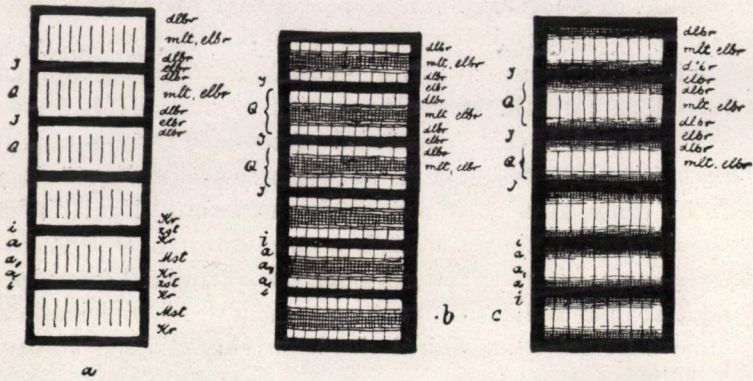 dlbr
mlt, elbr
dlbr
elbr
dlbr
mlt, elbr
dlbr
elbr
dlbr
J
Q
J
Q
Kr
zst
Kr
Mst
Kr
zst
Kr
Mst
Kr
i
a
a,
a,
i
a
dlbr
mlt, elbr
dlbr
elbr
dlbr
mlt elbr
dlbr
elbr
dlbr
mlt, elbr
J
Q
J
Q
J
i
a
a,
i
b
dlbr
mlt elbr
elbr
dlbr
mlt, elbr
dlbr
elbr
dlbr
mlt, elbr
J
Q
J
Q
J
i
a
a,
i
c